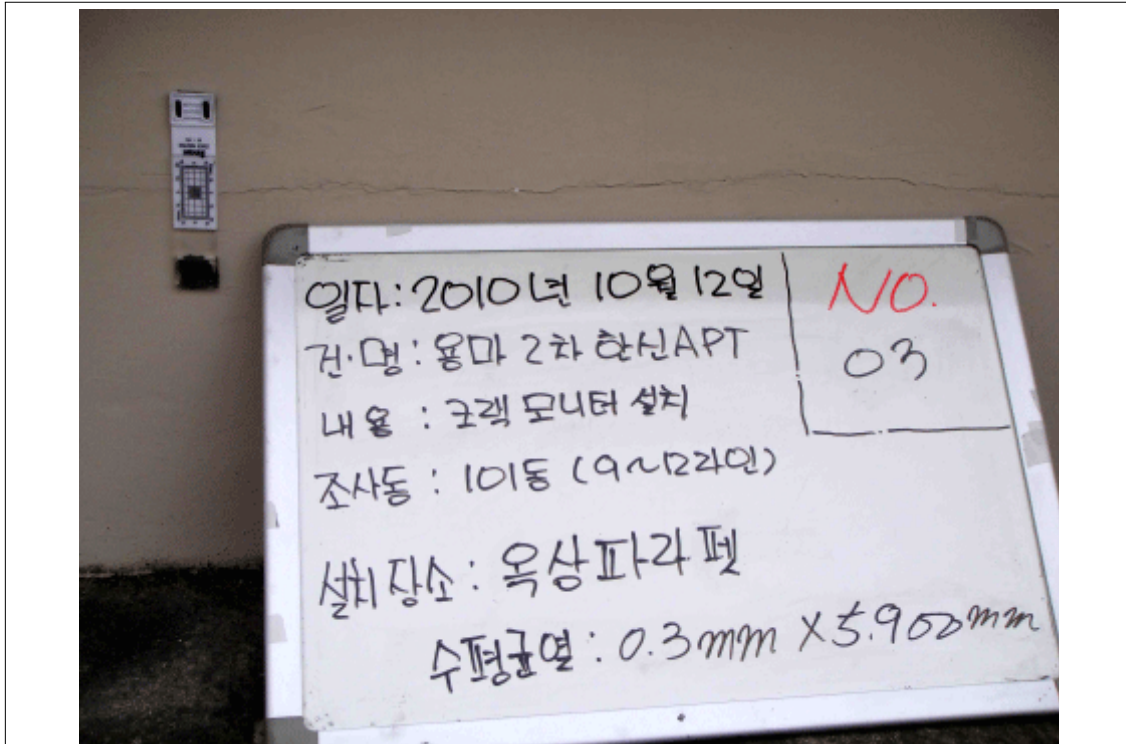 일자: 2010년 10월 12일
NO.
03
건·명: 용마 2차 한신APT
내용 : 크랙 모니터 설치
조사동 : 101동 (9~12라인)
설치장소: 옥상파라펫
수평균열: 0.3mm X 5.900mm